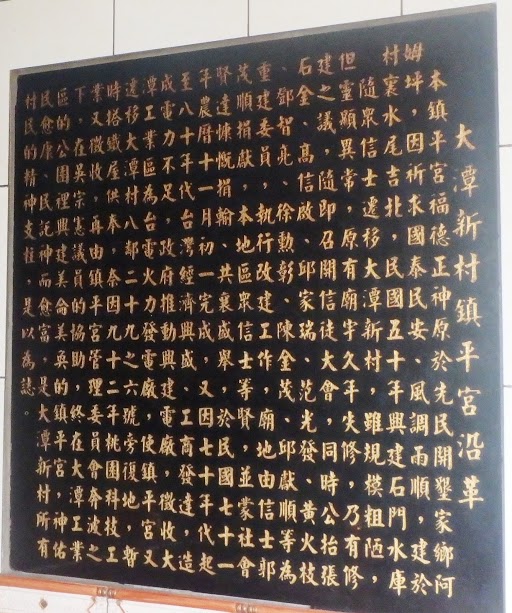 大潭新村鎮平宮沿革
本鎮平宮福德正神原於先民開墾家鄉阿
姆坪，因祈求國泰民安、風調雨順，建於
村襄水尾吉北，民國五十年興建石門水庫
，隨眾信士遷移大潭新村，雖規模粗陋，
但靈顯異常，原有廟宇久年失修，乃有修
建之議，隨即召開信徒大會，同時公抬張
石金、高信啟、邱家瑞、范光發、黃火枝
、鄧智亮、徐勳彰、陳金茂、邱獻順等為
重建委員，執行改建工作，廟地由信士郭
茂順捐獻，本地區眾信士等並蒙社會
賢達慷慨捐輸、共襄盛舉，於民國七十一
年農曆十一月初一完成，又因七十年代起
至八十年代台灣經濟興盛，工商發達，造
成電力不足，政府推動興建電廠，徵收大
潭工業區為台電火力發電廠，使鎮平宮又
遷移大潭村八鄰二十九之六號旁復地，暫
時搭鐵屋供奉，奈因九十二年桃園科技工
業又徵收，再由鎮平宮管理委員會奔波之
下，在吳宗憲議員的協助，終在大潭工業
區的公園裡興建美侖美奐的鎮平宮，神佑
民愈康、民託神而愈富，是大潭新村所有
村民的精神支柱，是以為誌。